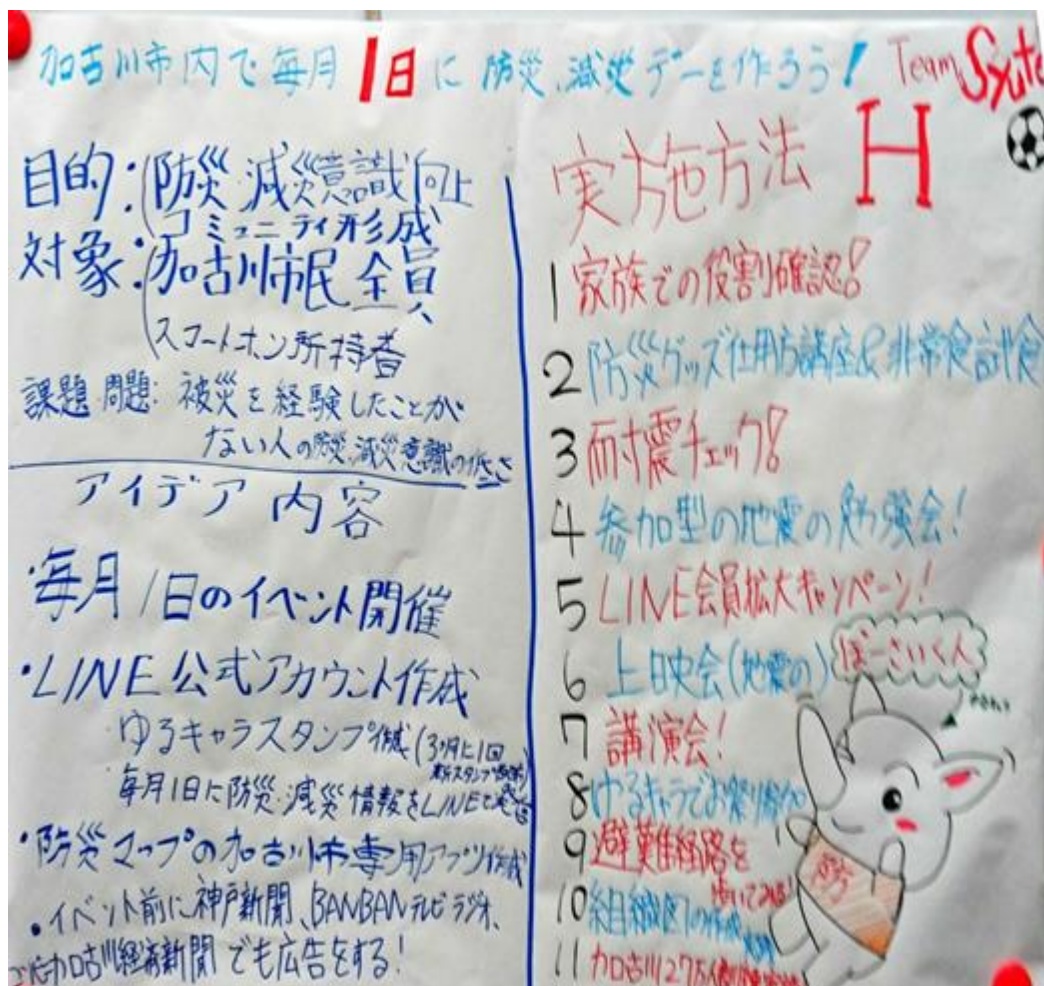 加古川市内で毎月1日に防災、減災デーを作ろう! Team Sixte
H
目的:防災 減災意識向上
コミュニティ形成
対象:加古川市民 全員
スマートホン所持者
課題 問題: 被災を経験したことが
ない人の防災 減災意識の低さ
アイデア 内容
・毎月1日のイベント開催
・LINE公式アカウント作成
ゆるキャラスタンプ作成(3ヶ月に1回
新スタンプ
毎月1日に防災・減災情報をLINEで発信
・防災マップの加古川市専用アプリ作成
・イベント前に神戸新聞、BANBANテレビラジオ、
加古川経済新聞でも広告をする!
実施方法
1 家族での役割確認!
2 防災グッズ使用方講座&非常食試食
3 耐震チェック!
4 参加型の地震の勉強会!
5 LINE会員拡大キャンペーン!
6 上映会(地震の)
7 講演会!
8 ゆるキャラでお祭り参加
9 避難経路を
歩いてみる!
10 組織図の作成
11 加古川27万人
ぼーさいくん
防